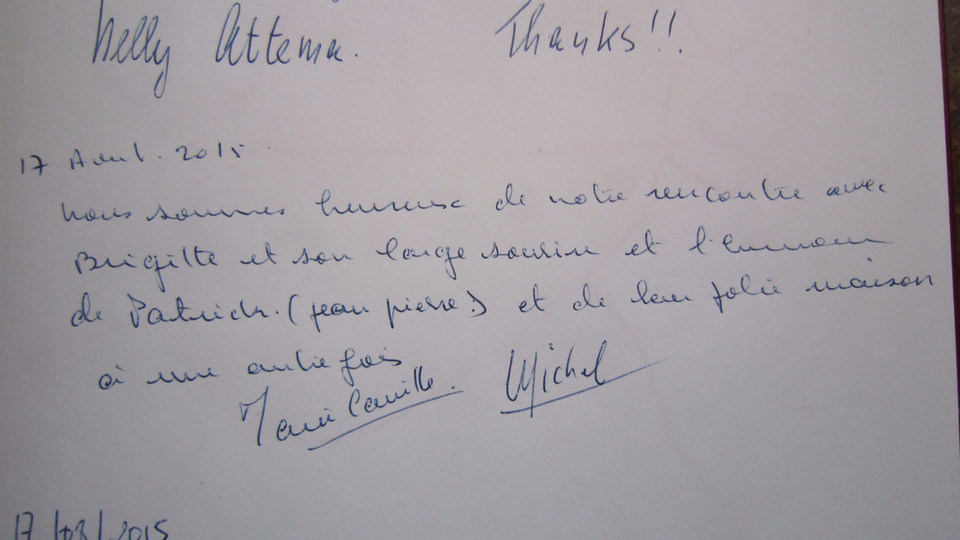 Nelly Attema. Thanks!!
17 Avril. 2015.
Nous sommes heureux de notre rencontre avec
Brigitte et son large sourire et l'humour
de Patrick. (jean pierre.) et de leur jolie maison
à une autre fois
Marie Camille. Michel
17/08/2015